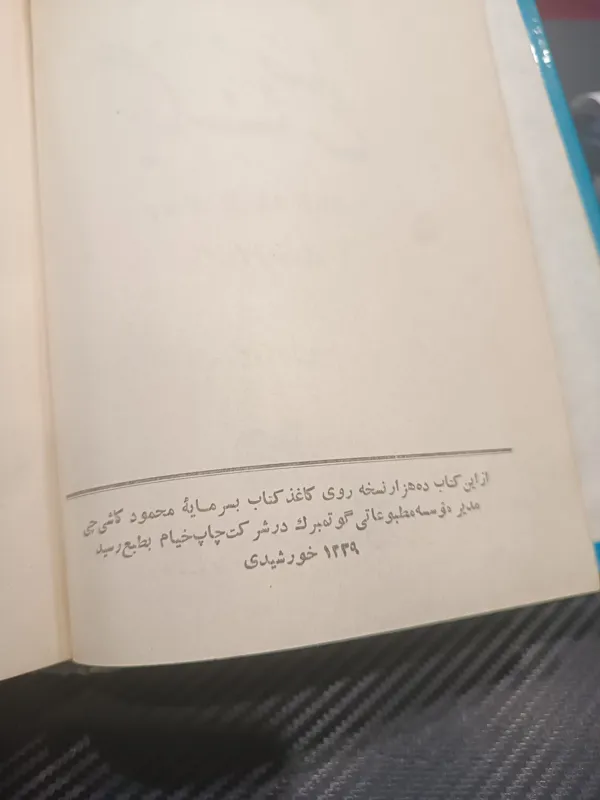 از این کتاب ده هزار نسخه روی کاغذ کتاب بسرمایهٔ محمود کاشی چی
مدیر مؤسسه مطبوعاتی گوتمبرك در شرکت چاپ خیام بطبع رسید
۱۳۳۹ خورشیدی